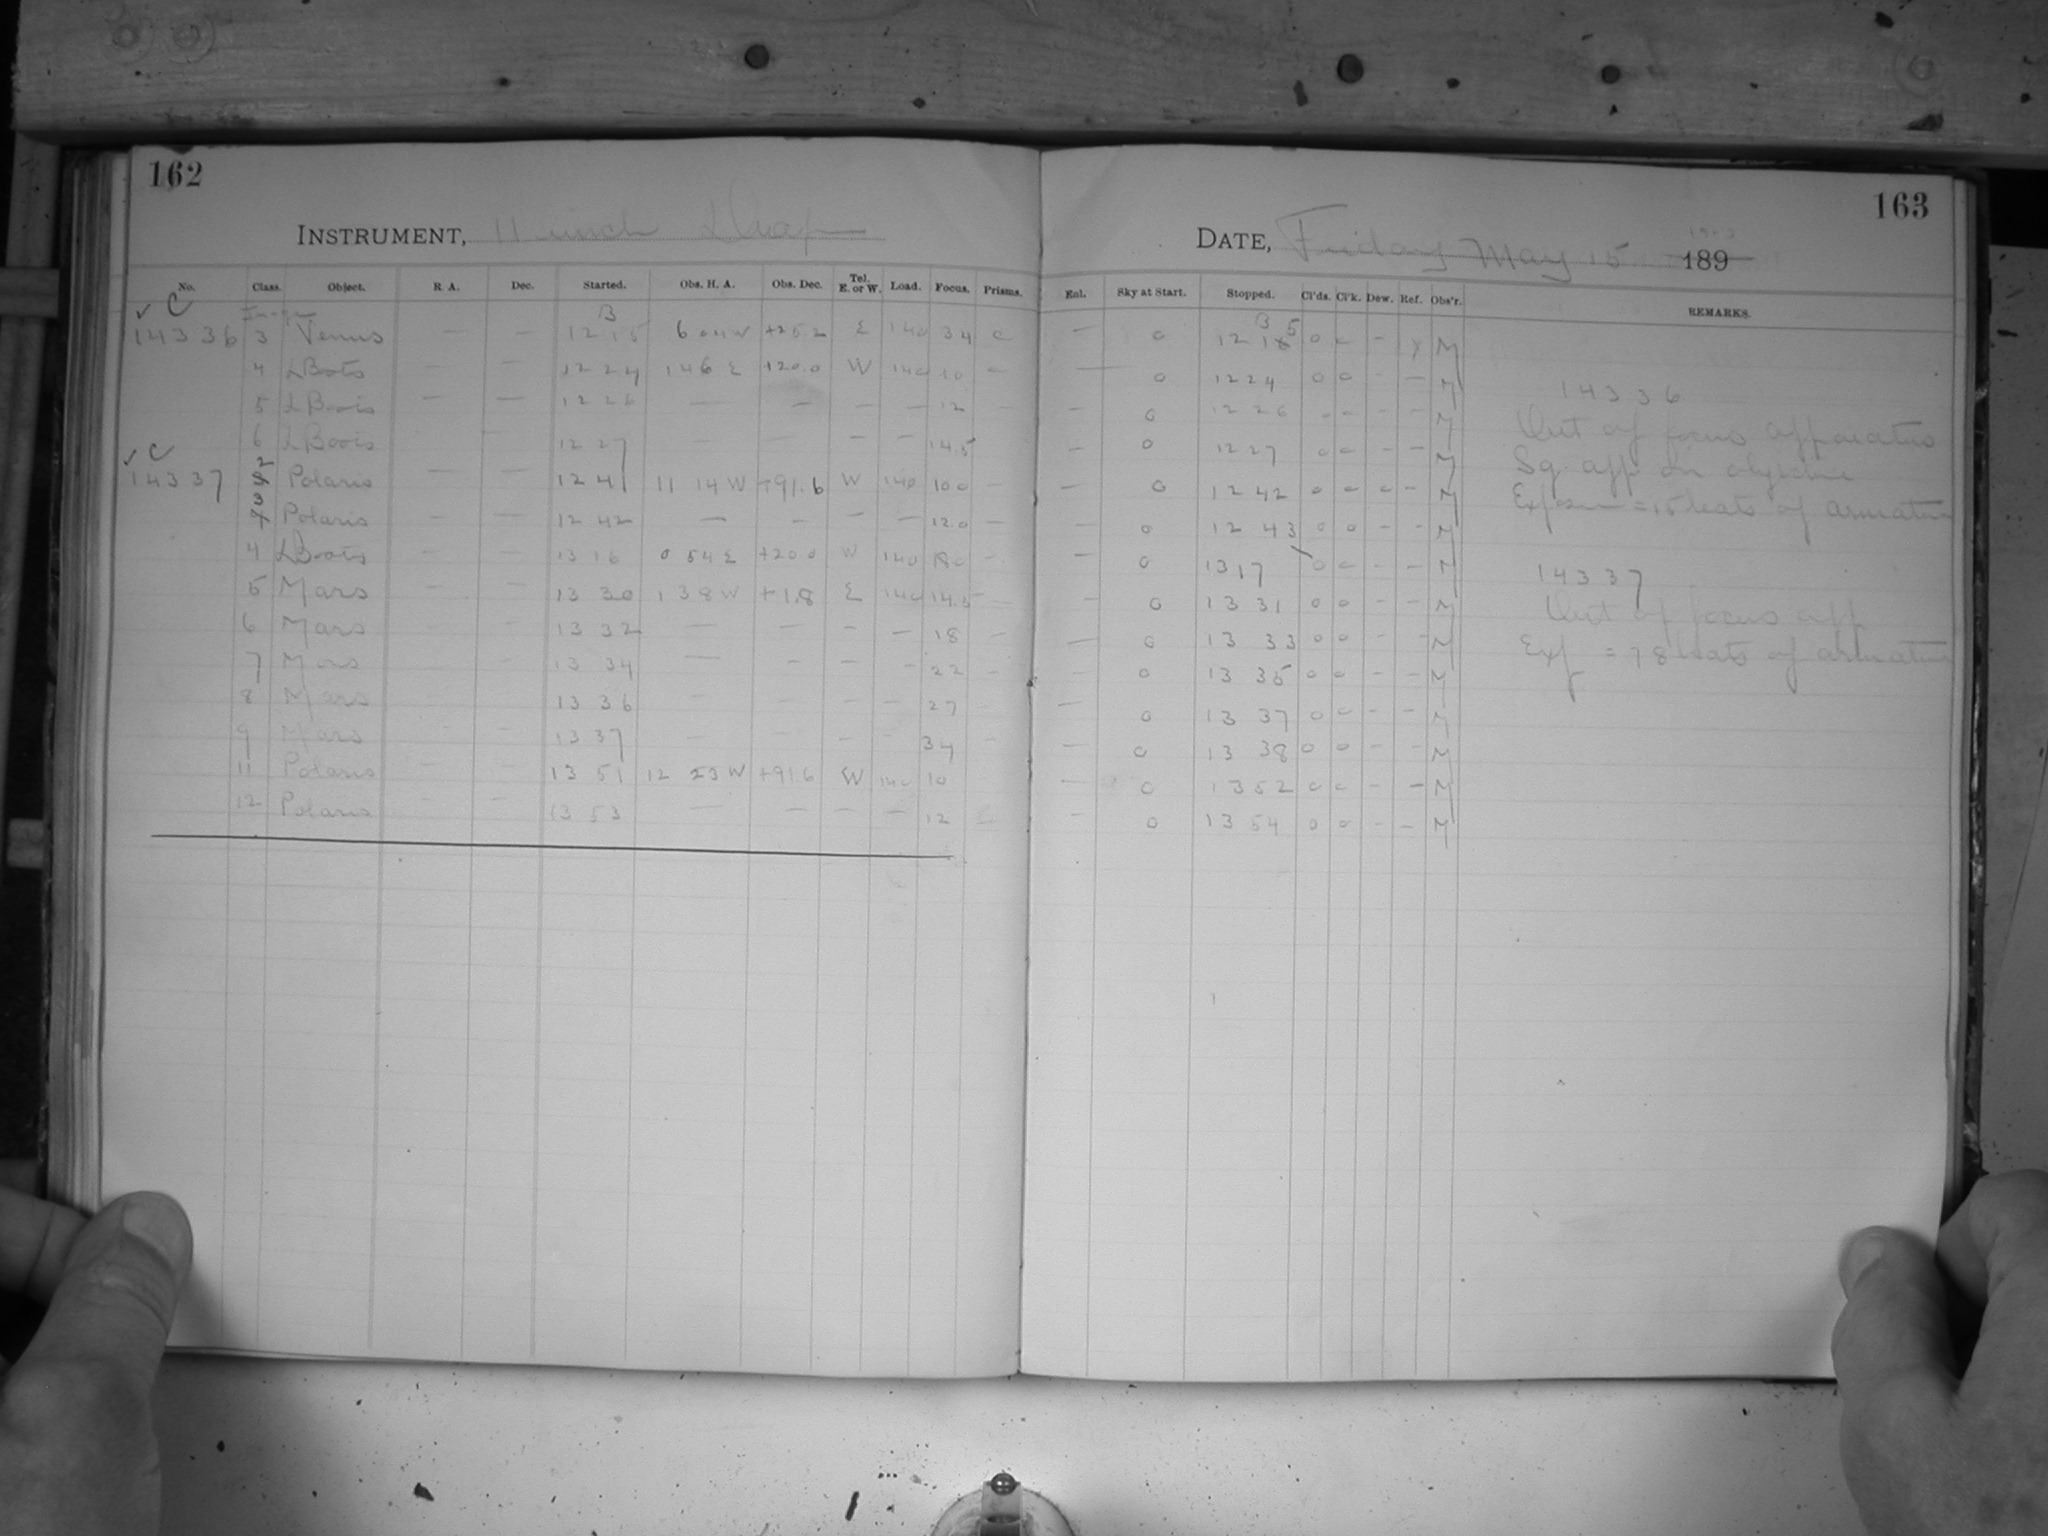 162
INSTRUMENT, 11 inch Draper
No. Class. Object. R. A. Dec. Started. Obs. H. A. Obs. Dec. Tel. E. or W. Load. Focus. Prisms.
✓ C Image B
14336 3 Venus — — 12 15 6 04 W +25.2 E 140 34 0
4 αBoots — — 12 24 1 46 E +20.0 W 140 10 —
5 αBoots — — 12 26 — — — — 12 —
6 αBoots — 12 27 — — — — 14.5
✓ C
14337 2 Polaris — — 12 41 11 14 W +91.6 W 140 10 0 —
3 Polaris — — 12 42 — — — — 12.0 —
4 αBoots — — 13 16 0 54 E +20 0 W 140 —
5 Mars — — 13 30 1 38 W +1.8 E 140 14.5 —
6 Mars — — 13 32 — — — — 18 —
7 Mars — — 13 34 — — — — 22 —
8 Mars — — 13 36 — — — — 27 —
9 Mars — — 13 37 — — — — 34 —
11 Polaris — — 13 51 12 23 W +91 6 W 140 10
12 Polaris — — 13 53 — — — — 12
163
DATE, Friday May 15 1903 189
Enl. Sky at Start. Stopped. Cl'ds. Cl'k. Dew. Ref. Obs'r. REMARKS.
B 5
— 0 12 1 0 0 - M
— 0 12 24 0 0 - — M
— 0 12 26 - - - - M
0 12 27 0 0 - - M
— 0 12 42 0 0 0 - M
— 0 12 43 0 0 - - M
— 0 13 17 0 0 - - M
— 0 13 31 0 0 - - M
— 0 13 33 0 0 - - M
— 0 13 35 0 0 - - M
— 0 13 37 0 0 - - M
— 0 13 38 0 0 - - M
— 0 13 52 0 0 - - M
— 0 13 54 0 0 - - M
14336
Out of focus apparatus
Sq. app on objective
Exposure = 15 beats of armature
14337
Out of focus app
Exp = 78 beats of armature